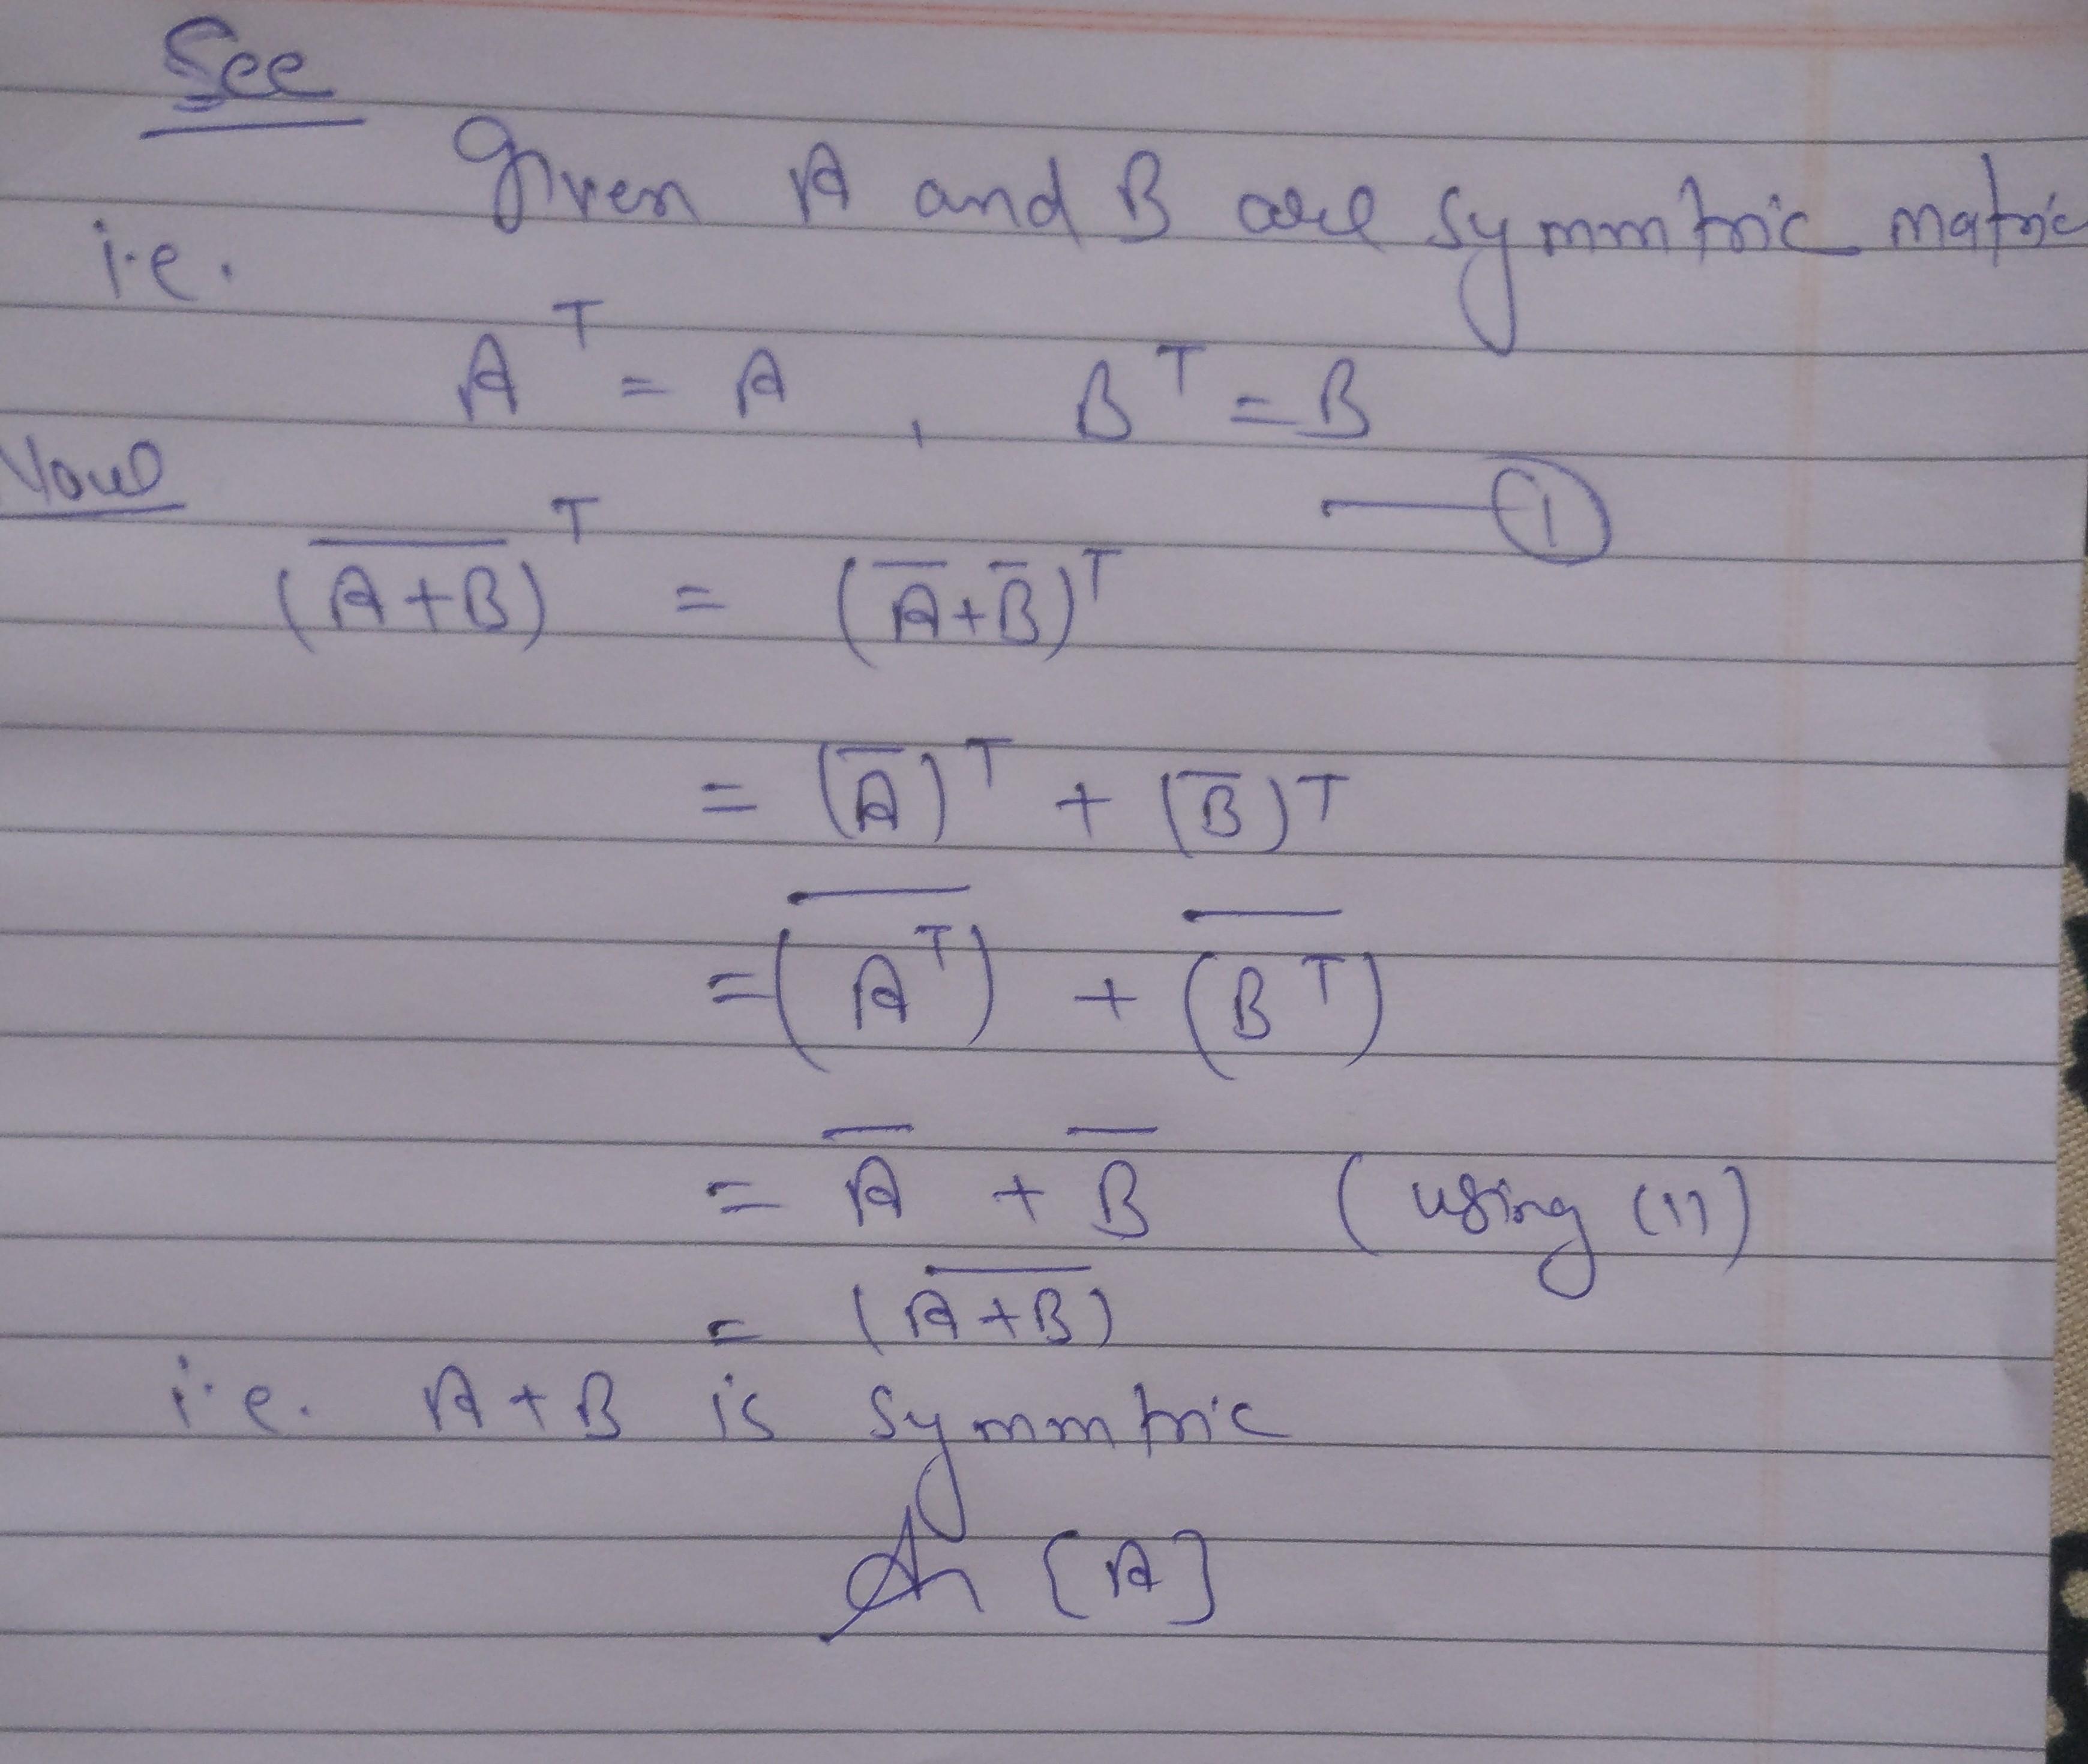 See
Given A and B are symmtric matric
i.e.
A^T = A , B^T = B
Now ——①
(\overline{A+B})^T = (\overline{A}+\overline{B})^T
= (\overline{A})^T + (\overline{B})^T
= \overline{(A^T)} + \overline{(B^T)}
= \overline{A} + \overline{B} (using (1))
= (\overline{A+B})
i.e. A+B is symmtric
[A]